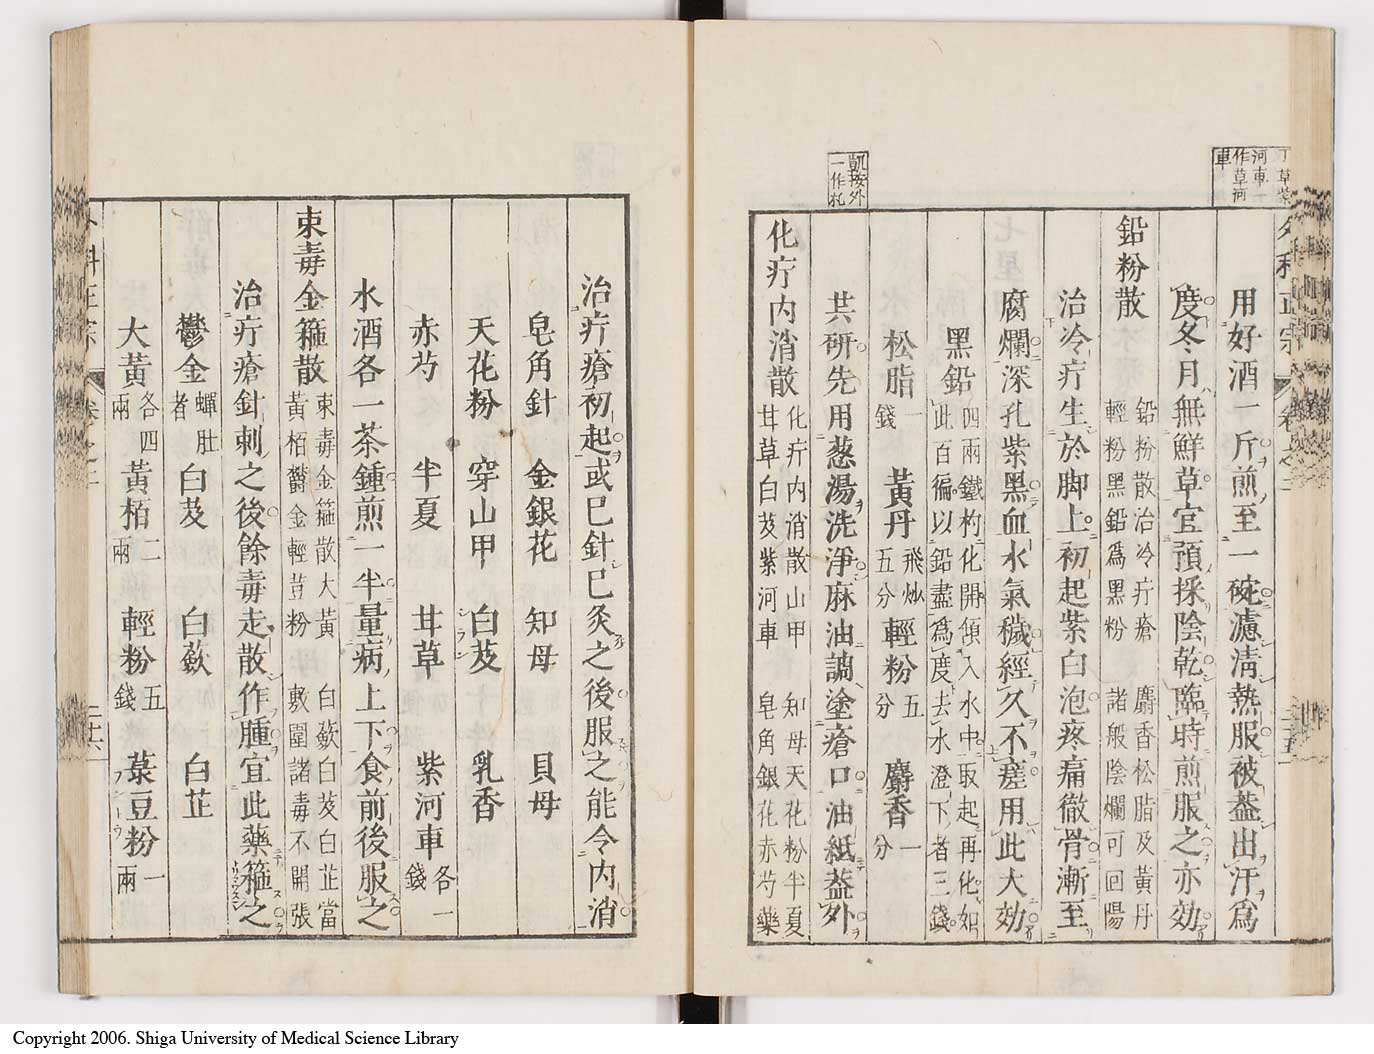 河車一
作草河
車
外科正宗 卷之二
用好酒一斤煎至一碗濾淸熱服被葢出汗爲
度冬月無鮮草宜預採陰乾臨時煎服之亦効
鉛粉散 鉛粉散治冷疔瘡 麝香松脂及黃丹
輕粉黑鉛爲黑粉 諸般陰爛可回陽
治冷疔生於脚上初起紫白泡疼痛徹骨漸至
腐爛深孔紫黑血水氣穢經久不瘥用此大効
黑鉛 四兩鐵杓化開傾入水中取起再化如
此百徧以鉛盡爲度去水澄下者三錢
松脂 一錢 黃丹 飛炒五分 輕粉 五分 麝香 一分
共研先用葱湯洗淨麻油調塗瘡口油紙葢外
凱按外
一作扎
化疔内消散 化疔内消散山甲 知母天花粉半夏
甘草白芨紫河車 皂角銀花赤芍藥
治疔瘡初起或已針已灸之後服之能令内消
皂角針 金銀花 知母 貝母
天花粉 穿山甲 白芨 乳香
赤芍 半夏 甘草 紫河車 各一錢
水酒各一茶鍾煎一半量病上下食前後服之
束毒金箍散 束毒金箍散大黃 白蘞白芨白芷當
黃栢欝金輕荳粉 敷圍諸毒不開張
治疔瘡針刺之後餘毒走散作腫宜此藥箍之
鬱金 蟬肚者 白芨 白蘞 白芷
大黃 各四兩 黃栢 二兩 輕粉 五錢 菉豆粉 一兩
外科正宗 卷之二 二十六